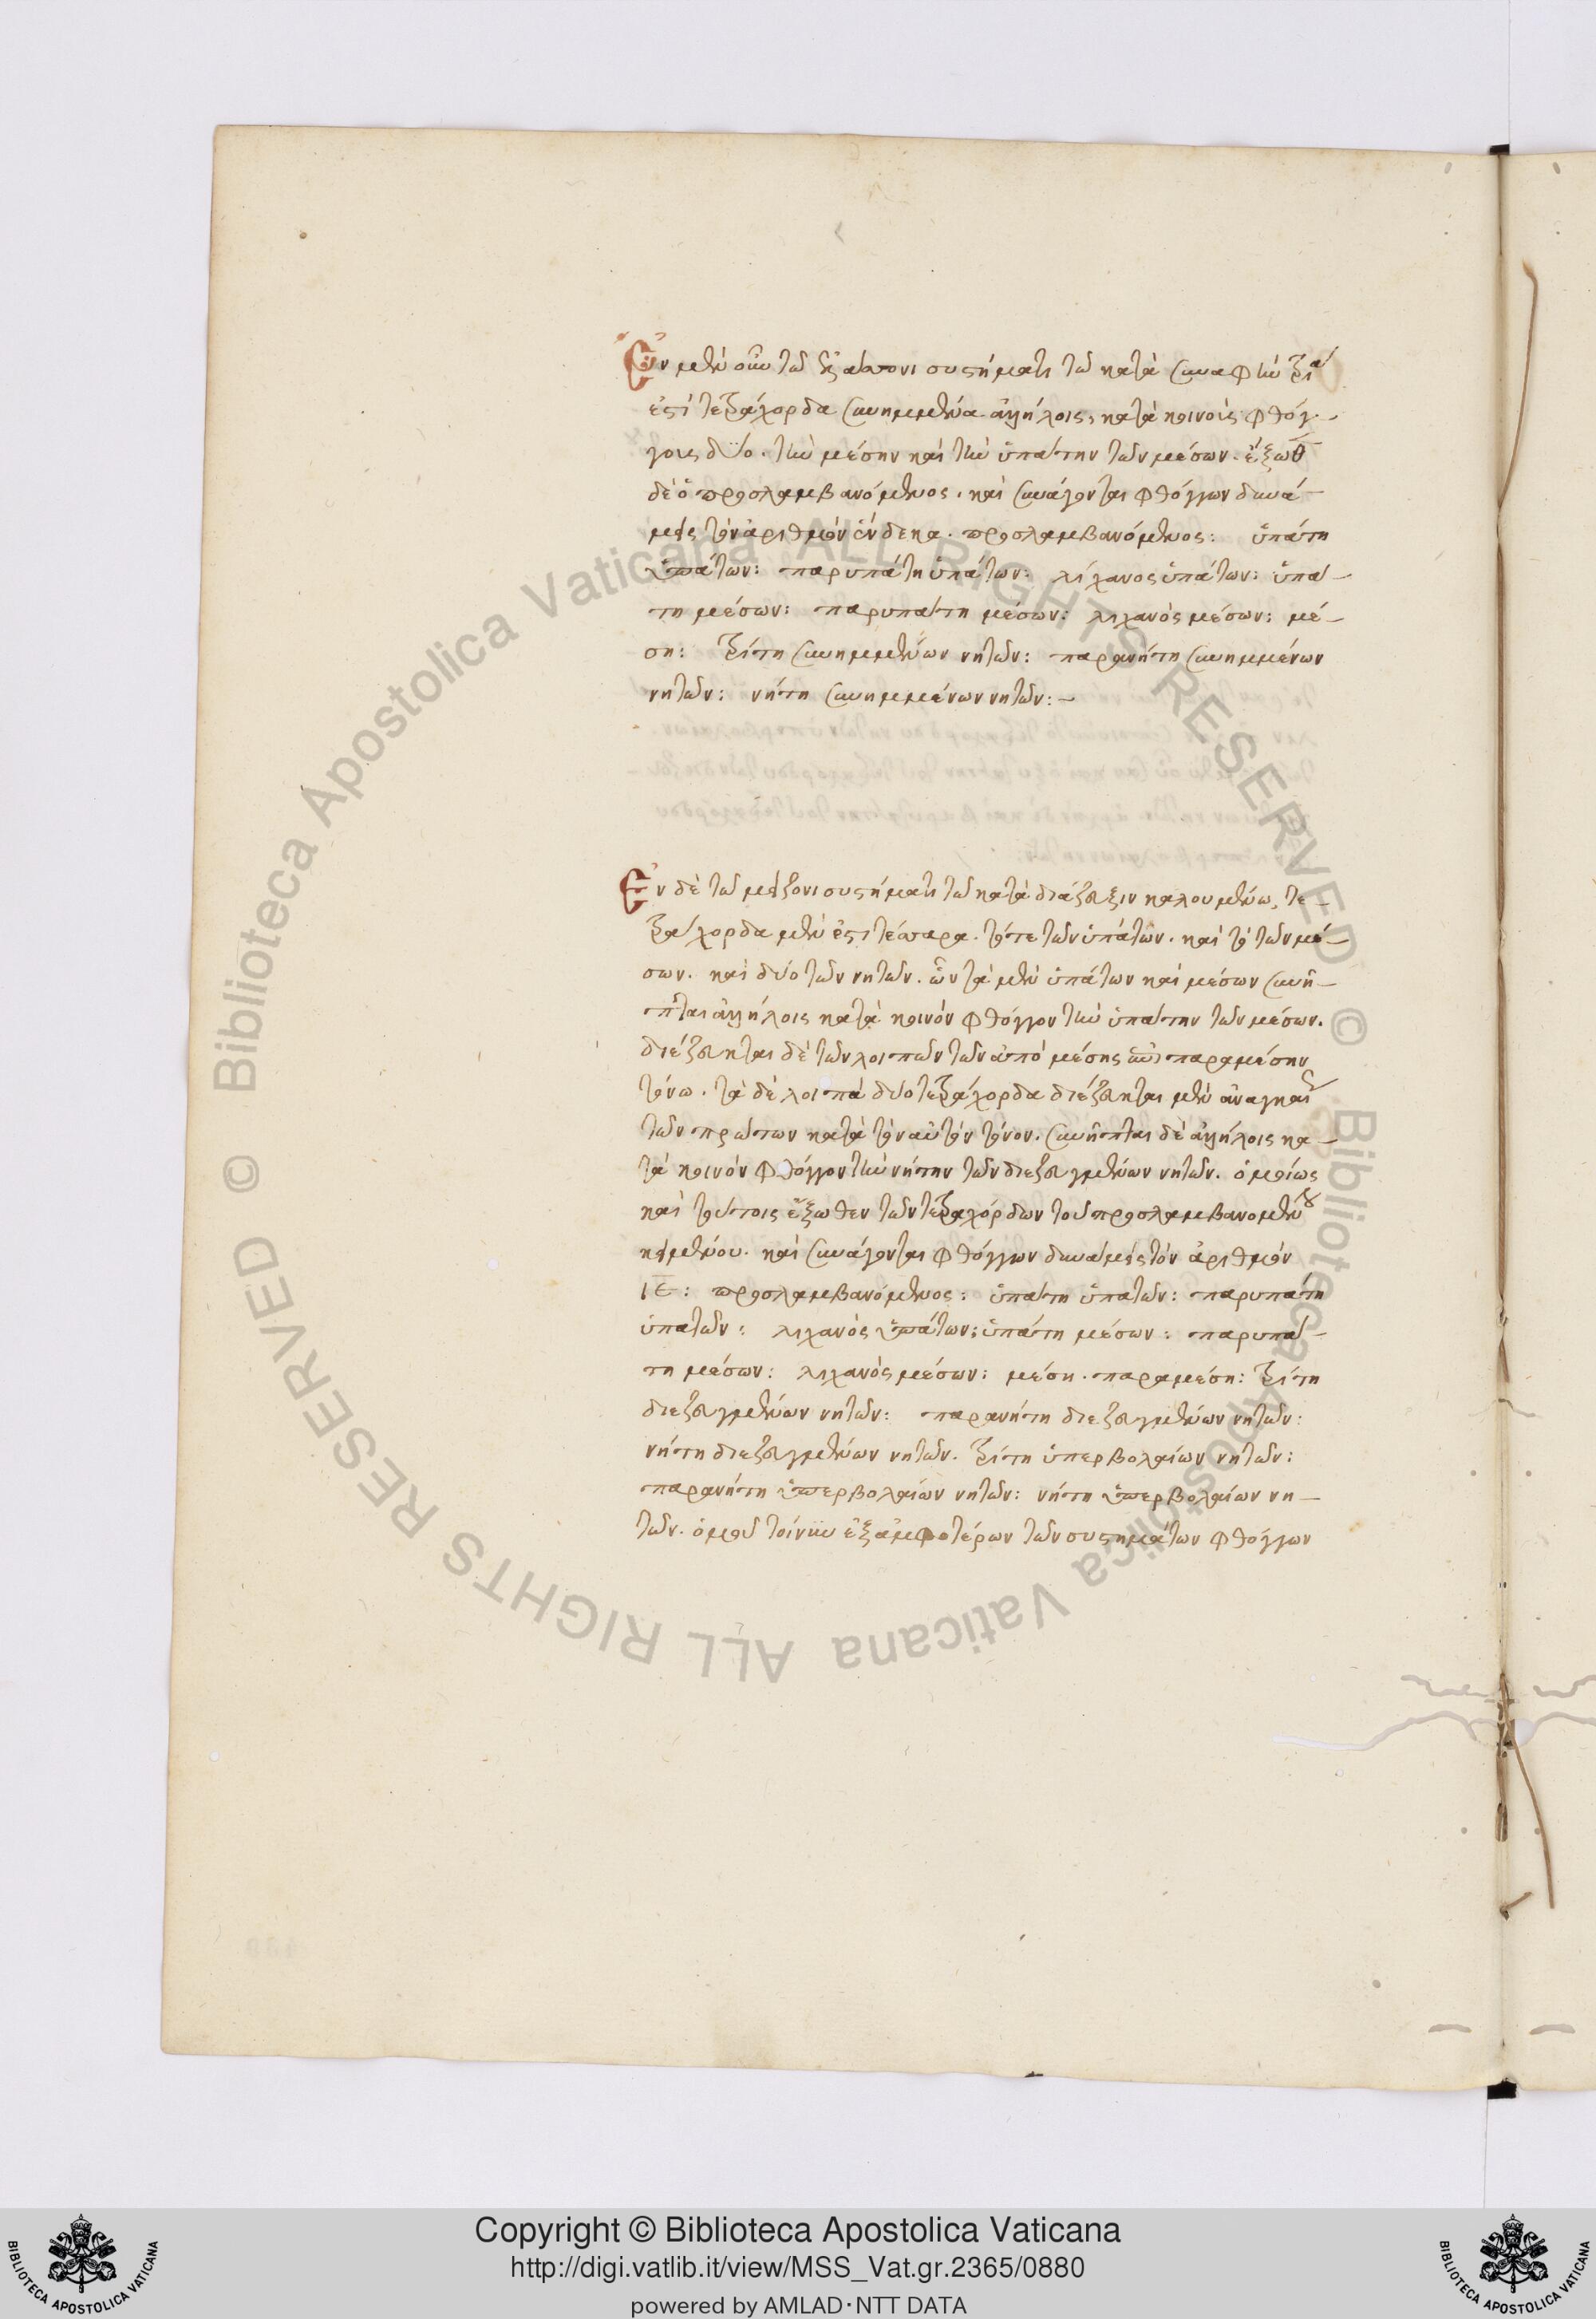 Ἐν μὲν οὖν τῶ ἐλάττονι συστήματι τῶ κατὰ συναφὴν τρία
ἐστὶ τετράχορδα συνημμένα ἀλλήλοις, κατὰ κοινοὺς φθόγ-
γους δύο. τὴν μέσην καὶ τὴν ὑπάτην τῶν μέσων. ἔξωθεν
δὲ ὁ προσλαμβανόμενος. καὶ συνάγονται φθόγγων δυνά-
μεις τὸν ἀριθμὸν ἕνδεκα. προσλαμβανόμενος: ὑπάτη
ὑπάτων: παρυπάτη ὑπάτων: λίχανος ὑπάτων: ὑπά-
τη μέσων: παρυπάτη μέσων: λιχανὸς μέσων: μέ-
ση: τρίτη συνημμένων νητῶν: παρανήτη συνημμένων
νητῶν: νήτη συνημμένων νητῶν:-
Ἐν δὲ τῶ μείζονι συστήματι τῶ κατὰ διάζευξιν καλουμένω, τε-
τράχορδα μὲν ἐστι τέσσαρα. τό τε τῶν ὑπάτων. καὶ τὸ τῶν μέ-
σων. καὶ δύο τῶν νητῶν. ὧν τὰ μὲν ὑπάτων καὶ μέσων συνῆ-
πται ἀλλήλοις κατὰ κοινὸν φθόγγον τὴν ὑπάτην τῶν μέσων.
διέζευκται δὲ τῶν λοιπῶν τῶν ἀπὸ μέσης ἐπὶ παραμέσην
τόνω. τὰ δὲ λοιπὰ δύο τετράχορδα διέζευκται μὲν ἀναγκαίως
τῶν πρώτων κατὰ τὸν αὐτὸν τόνον. συνῆπται δὲ ἀλλήλοις κα-
τὰ κοινὸν φθόγγον τὴν νήτην τῶν διεζευγμένων νητῶν. ὁμοίως
καὶ τούτοις ἔξωθεν τῶν τετραχόρδων τοῦ προσλαμβανομένου
κειμένου. καὶ συνάγονται φθόγγων δυνάμεις τὸν ἀριθμὸν
ΙΕ: προσλαμβανόμενος: ὑπάτη ὑπατῶν: παρυπάτη
ὑπατῶν: λιχανὸς ὑπάτων: ὑπάτη μέσων: παρυπά-
τη μέσων: λιχανὸς μέσων: μέση. παραμέση: τρίτη
διεζευγμένων νητῶν: παρανήτη διεζευγμένων νητῶν:
νήτη διεζευγμένων νητῶν. τρίτη ὑπερβολαίων νητῶν:
παρανήτη ὑπερβολαίων νητῶν: νήτη ὑπερβολαίων νη-
τῶν. ὁμοῦ τοίνυν ἐξ ἀμφοτέρων τῶν συστημάτων φθόγγων
© Biblioteca Apostolica Vaticana ALL RIGHTS RESERVED
© Biblioteca Apostolica Vaticana ALL RIGHTS RESERVED
Copyright © Biblioteca Apostolica Vaticana
http://digi.vatlib.it/view/MSS_Vat.gr.2365/0880
powered by AMLAD·NTT DATA
BIBLIOTECA APOSTOLICA VATICANA
BIBLIOTECA APOSTOLICA VATICANA